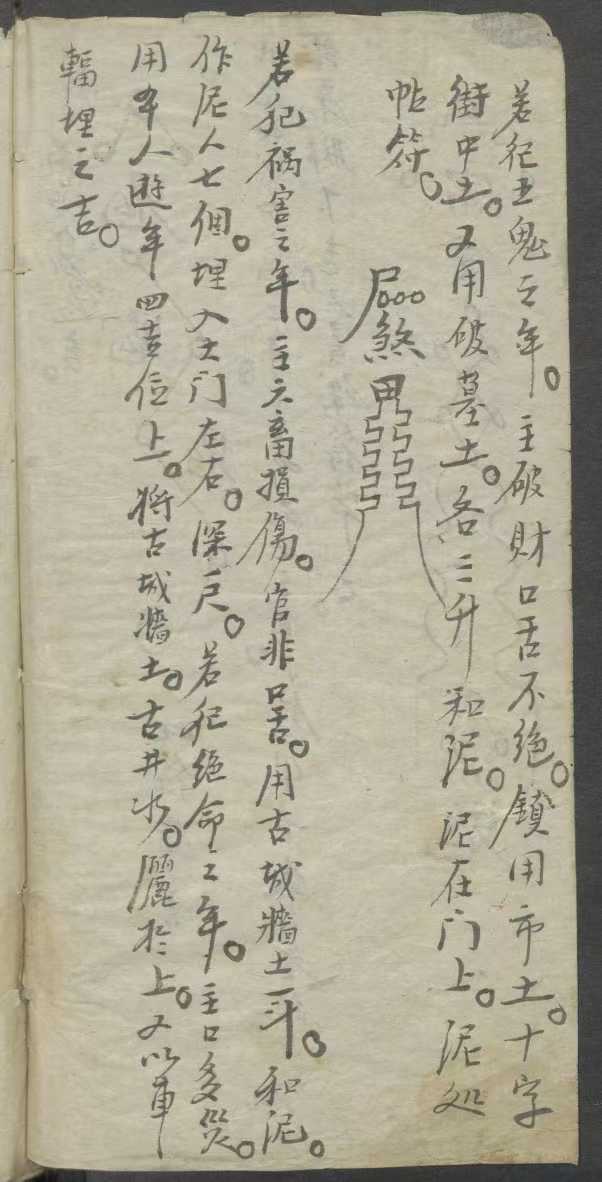 若犯五鬼之年。主破財口舌不绝。鎮用市土。十字
街中土。又用破墓土。各三升和泥。泥在门上。泥处
帖符。
煞
若犯禍害之年。主六畜損傷。官非口舌。用古城墻土一斗。和泥。
作泥人七個。埋入大门左右。深一尺。若犯绝命之年。主口多災。
用本人遊年四吉位上。將古城墻土。古井水。灑於上。又以車
輻埋之吉。